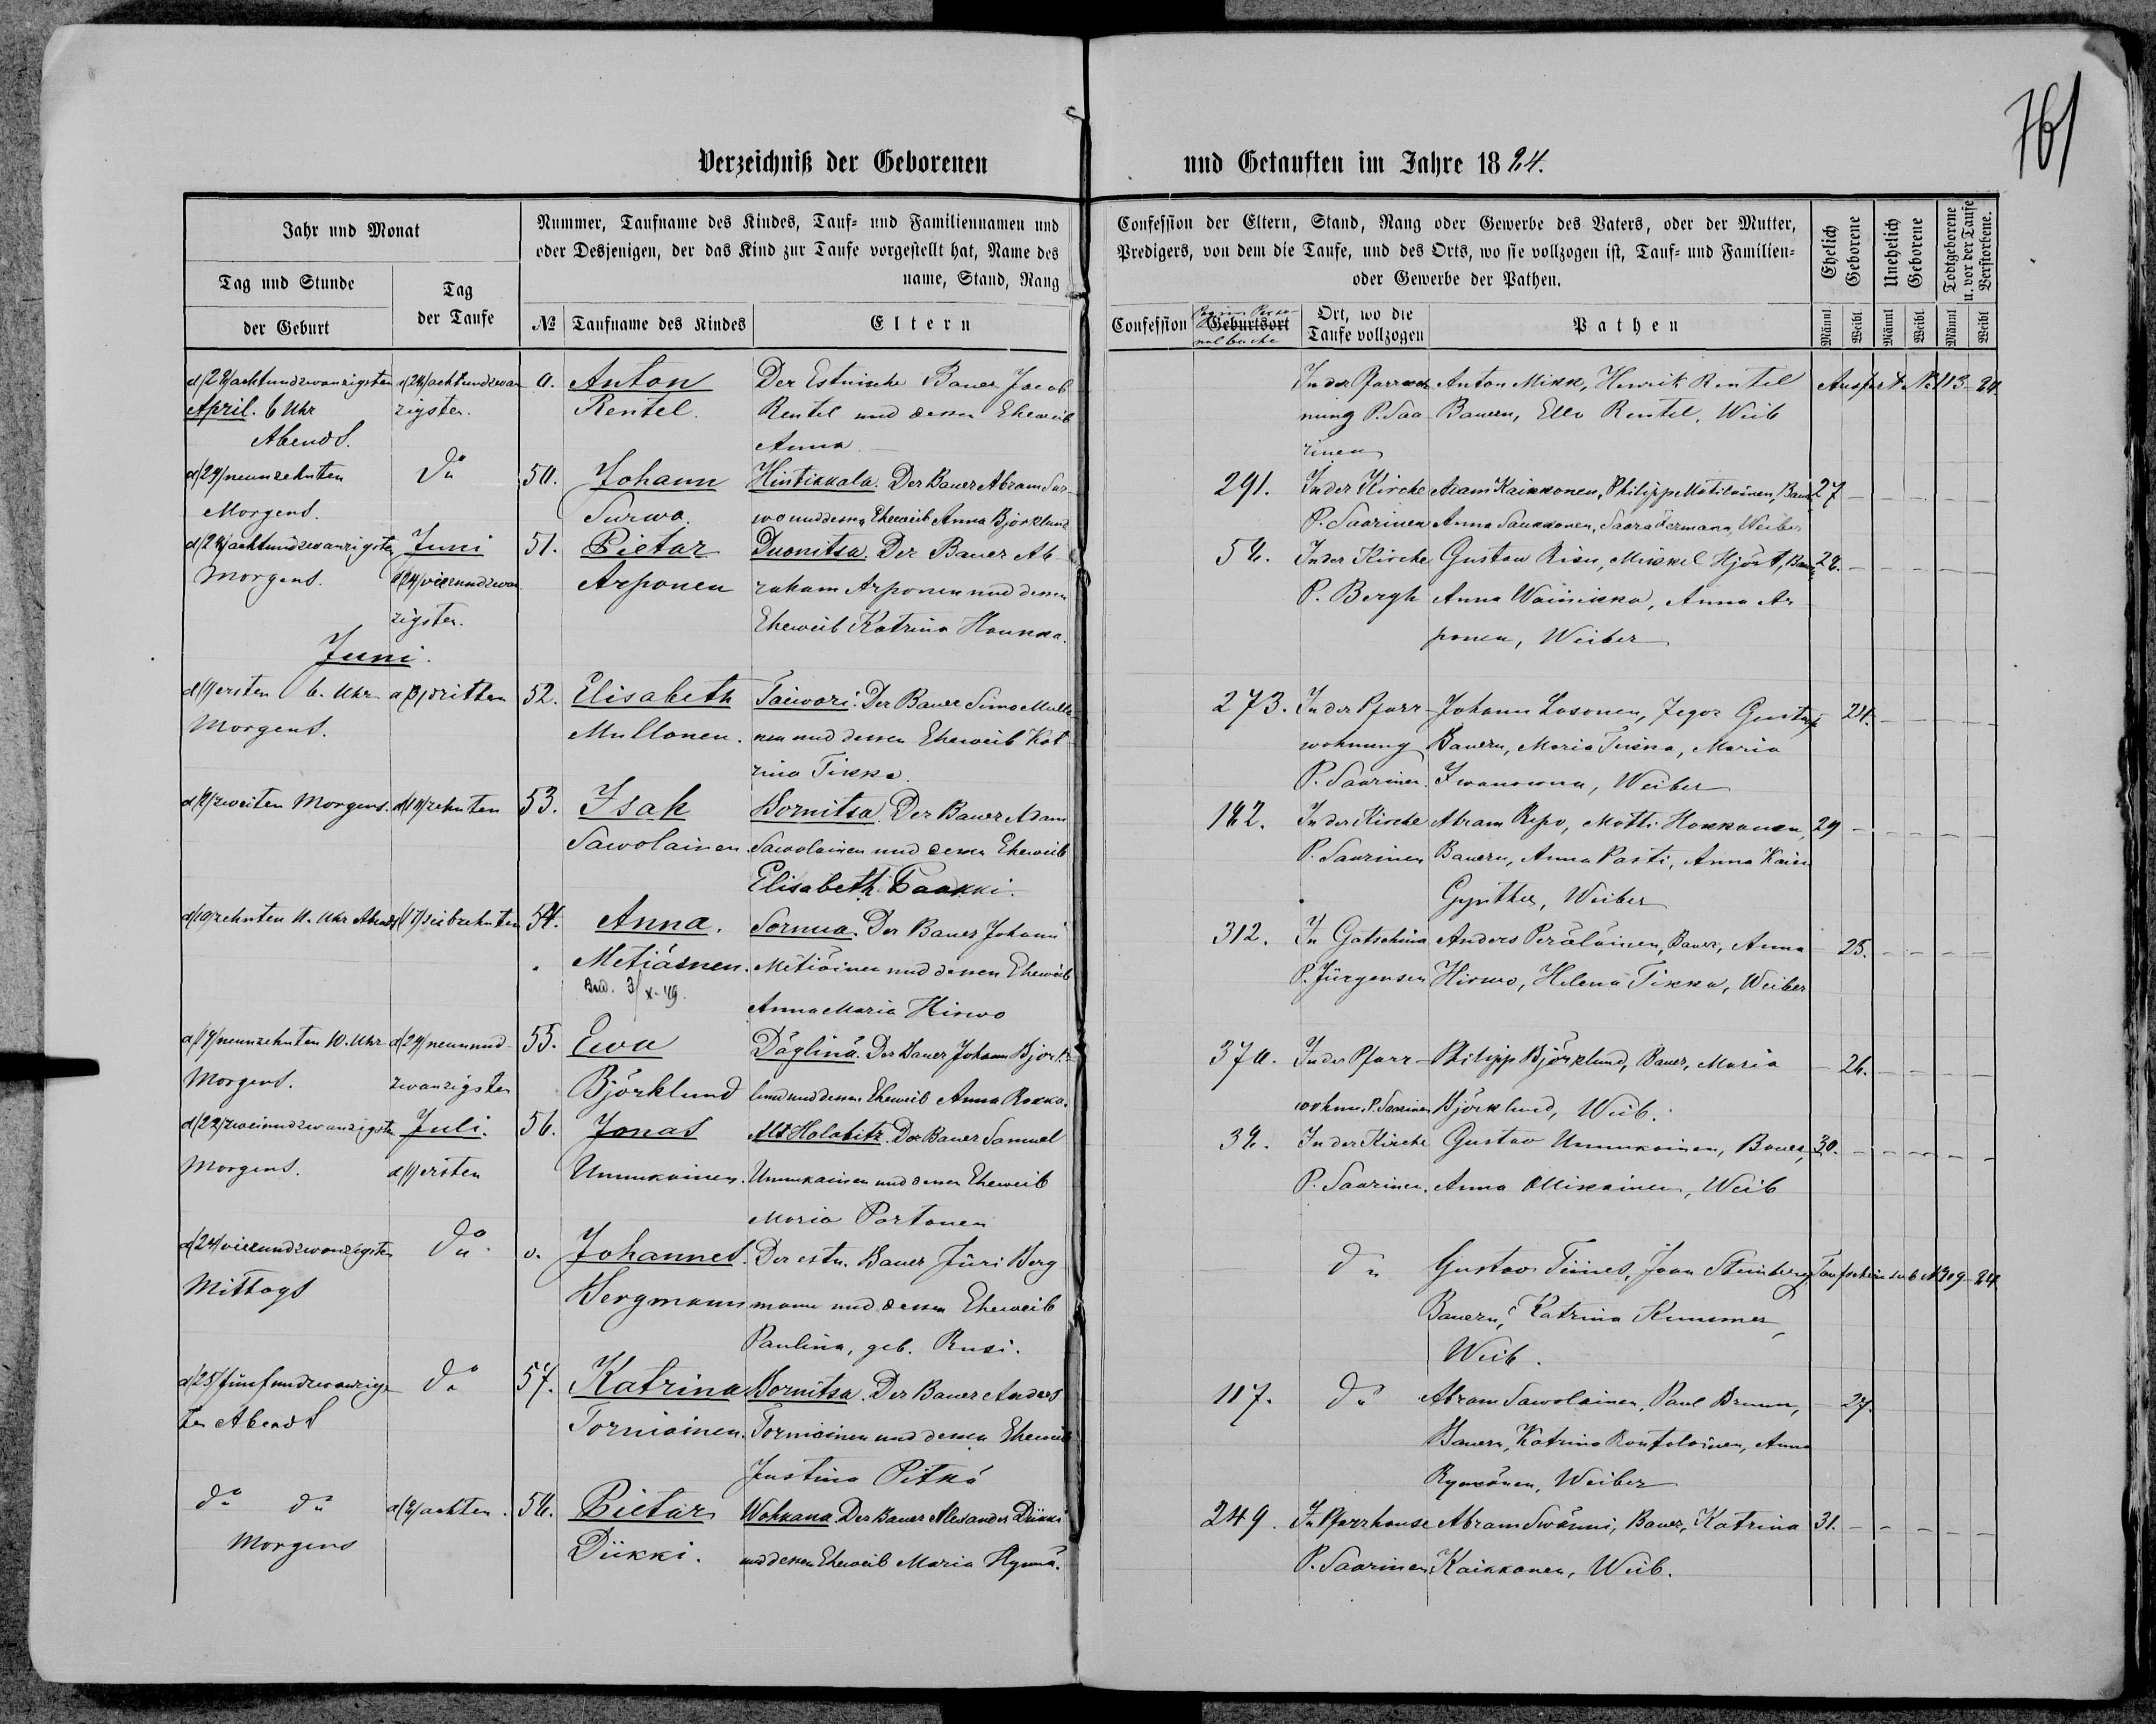 761
Verzeichniß der Geborenen und Getauften im Jahre 1884.
Jahr und Monat
Tag und Stunde
der Geburt
Tag
der Taufe
Nummer, Taufname des Kindes, Tauf- und Familiennamen und
oder Desjenigen, der das Kind zur Taufe vorgestellt hat, Name des
name, Stand, Rang
№ Taufname des Kindes
Eltern
Confession der Eltern, Stand, Rang oder Gewerbe des Vaters, oder der Mutter,
Predigers, von dem die Taufe, und des Orts, wo sie vollzogen ist, Tauf- und Familien-
oder Gewerbe der Pathen.
Confession
Geburtsort
Ort, wo die
Taufe vollzogen
Pathen
Ehelich
Geborene
Unehelich
Geborene
Todtgeborene
u. vor der Taufe
Verstorbene.
Männl. Weibl. Männl Weibl. Männl Weibl
d/28/achtundzwanzigsten
April. 6 Uhr
Abends.
d/28/achtundzwan
zigsten.
0. Anton
Rentel.
Der Estnische Bauer Jacob
Rentel und dessen Eheweib
Anna
In der Pfarrwoh
nung P. Saa
rinen
Anton Mikk, Henrik Rentel
Bauern, Ello Rentel, Weib
d/29/neunzehnten
Morgens.
do
50. Johann
Surwo.
Hintikkala. Der Bauer Abram Sur-
wo und dessen Eheweib Anna Björklund
291.
In der Kirche
P. Saarinen
Adam Kaikkonen, Philipp Motilainen, Bauern
Anna Saukkonen, Saara Wermann, Weiber
27
d/28/achtundzwanzigsten
Morgens.
Juni
d/24/vierundzwan
zigsten.
51. Pietar
Arponen
Duonitsa. Der Bauer Ab-
raham Arponen und dessen
Eheweib Katrina Haukka.
58.
In der Kirche
P. Bergh
Gustav Risu, Mikkel Hjört, Bauern
Anna Wainikka, Anna Ar-
ponen, Weiber
28.
Juni.
d/1/ersten 6. Uhr
Morgens.
d/3/dritten
52. Elisabeth
Mullonen.
Taiwori. Der Bauer Simo Mullo-
nen und dessen Eheweib Kat-
rina Tikka.
273.
In der Pfarr-
wohnung
P. Saarinen.
Johann Lasonen, Jegor Gustaf
Bauern, Maria Tikka, Maria
Iwanowna, Weiber
24.
d/2/zweiten Morgens.
d/10/zehnten
53. Isak
Sawolainen.
Bornitsa. Der Bauer Adam
Sawolainen und dessen Eheweib
Elisabeth Taakki.
182.
In der Kirche
P. Saarinen
Abram Repo, Matti Hokkanen,
Bauern, Anna Pasti, Anna Kaisa
Gynther, Weiber
29
d/10/zehnten 11. Uhr Abends
d/17/siebzehnten
54. Anna.
Metiäinen.
Sornua. Der Bauer Johann
Metiäinen und dessen Eheweib
Anna Maria Hirwo
312.
In Gatschina
P. Jürgensen
Anders Peräläinen, Bauer, Anna
Hirwo, Helena Tikka, Weiber
25.
d/19/neunzehnten 10. Uhr
Morgens.
d/29/neunund-
zwanzigsten
55. Ewa
Björklund
Däglinä. Der Bauer Johann Björk-
lund und dessen Eheweib Anna Rokka.
370.
In der Pfarr-
wohn. P. Saarinen
Philipp Björklund, Bauer, Maria
Björklund, Weib.
26.
d/22/zweiundzwanzigsten
Morgens.
Juli.
d/1/ersten
56. Jonas
Unnukainen.
Alt Holobitz. Der Bauer Samuel
Unnukainen und dessen Eheweib
Maria Partanen
38.
In der Kirche
P. Saarinen.
Gustav Unnukainen, Bauer,
Anna Mikainen, Weib
30.
d/24/vierundzwanzigsten
Mittags
do
0. Johannes.
Bergmann
Der estn. Bauer Jüri Berg
mann und dessen Eheweib
Paulina, geb. Rusi.
do
Gustav Tiines, Joan Steinberg
Bauern, Katrina Kuusmer,
Weib.
d/25/fünfundzwanzigs-
ten Abends
do
57. Katrina
Torniainen.
Bornitsa. Der Bauer Anders
Torniainen und dessen Eheweib
Justina Pitkä
117.
do
Abram Sawolainen, Paul Brunn,
Bauern, Katrina Rontolainen, Anna
Rynkönen, Weiber
27.
do do
Morgens
d/8/achten.
58. Pietar
Dükki.
Wohkana. Der Bauer Alexander Dükki
und dessen Eheweib Maria Hynnä.
249.
In Pfarrhause
P. Saarinen
Abram Swänni, Bauer, Katrina
Kaikkonen, Weib.
31.